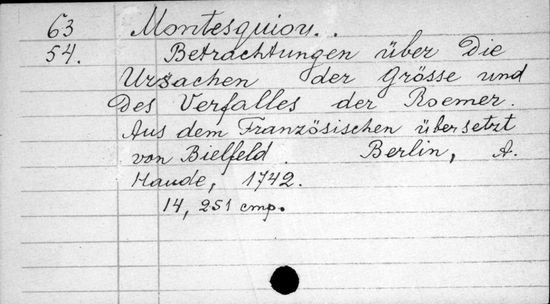 63 Montesquiou.
54. Betrachtungen über Die
Ursachen der Grösse und
Des Verfalles der Roemer.
Aus dem Französischen übersetzt
von Bielfeld. Berlin, A.
Haude, 1742.
14, 251 стр.